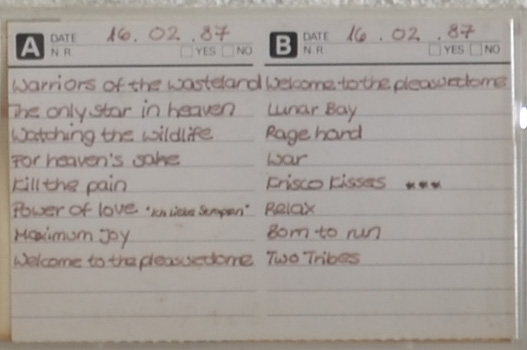 A DATE 16.02.87
N.R. YES NO
Warriors of the wasteland
The only star in heaven
Watching the wildlife
For heaven's sake
Kill the pain
Power of love "Ich liebe
Maximum Joy
Welcome to the pleasuredome
B DATE 16.02.87
N.R. YES NO
Welcome to the pleasuredome
Lunar Bay
Rage hard
War
Frisco Kisses ***
Relax
Born to run
Two Tribes